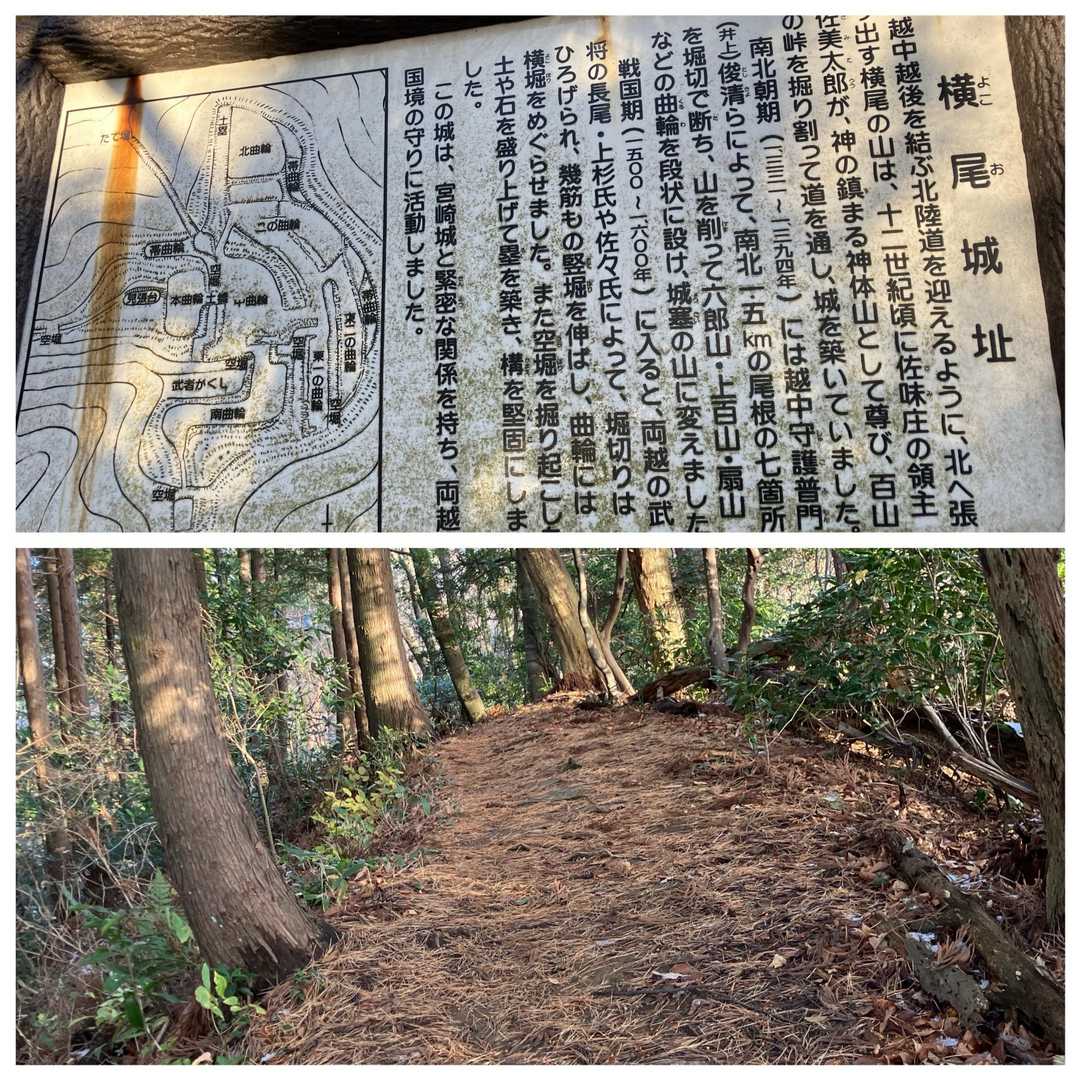 横尾城址
よこ お
越中越後を結ぶ北陸道を迎えるように、北へ張
り出す横尾の山は、十二世紀頃に佐味庄の領主
佐美太郎が、神の鎮まる神体山として尊び、百山
の峠を掘り割って道を通し、城を築いていました。
南北朝期(一三三一〜一三九四年)には越中守護普門
(井上)俊清らによって、南北一五kmの尾根の七箇所
を堀切で断ち、山を削って六郎山・上百山・扇山
などの曲輪を段状に設け、城塞の山に変えました
戦国期(一五〇〇〜一六〇〇年)に入ると、両越の武
将の長尾・上杉氏や佐々氏によって、堀切りは
ひろげられ、幾筋もの竪堀を伸ばし、曲輪には
横堀をめぐらせました。また空堀を掘り起こし
土や石を盛り上げて塁を築き、構を堅固にしま
した。
この城は、宮崎城と緊密な関係を持ち、両越
国境の守りに活動しました。
たて堀
土塁
北曲輪
帯曲輪
二の曲輪
帯曲輪
空堀
見張台
本曲輪
土塁
帯曲輪
東二の曲輪
空堀
空堀
空堀
東一の曲輪
武者がくし
南曲輪
空堀
空堀